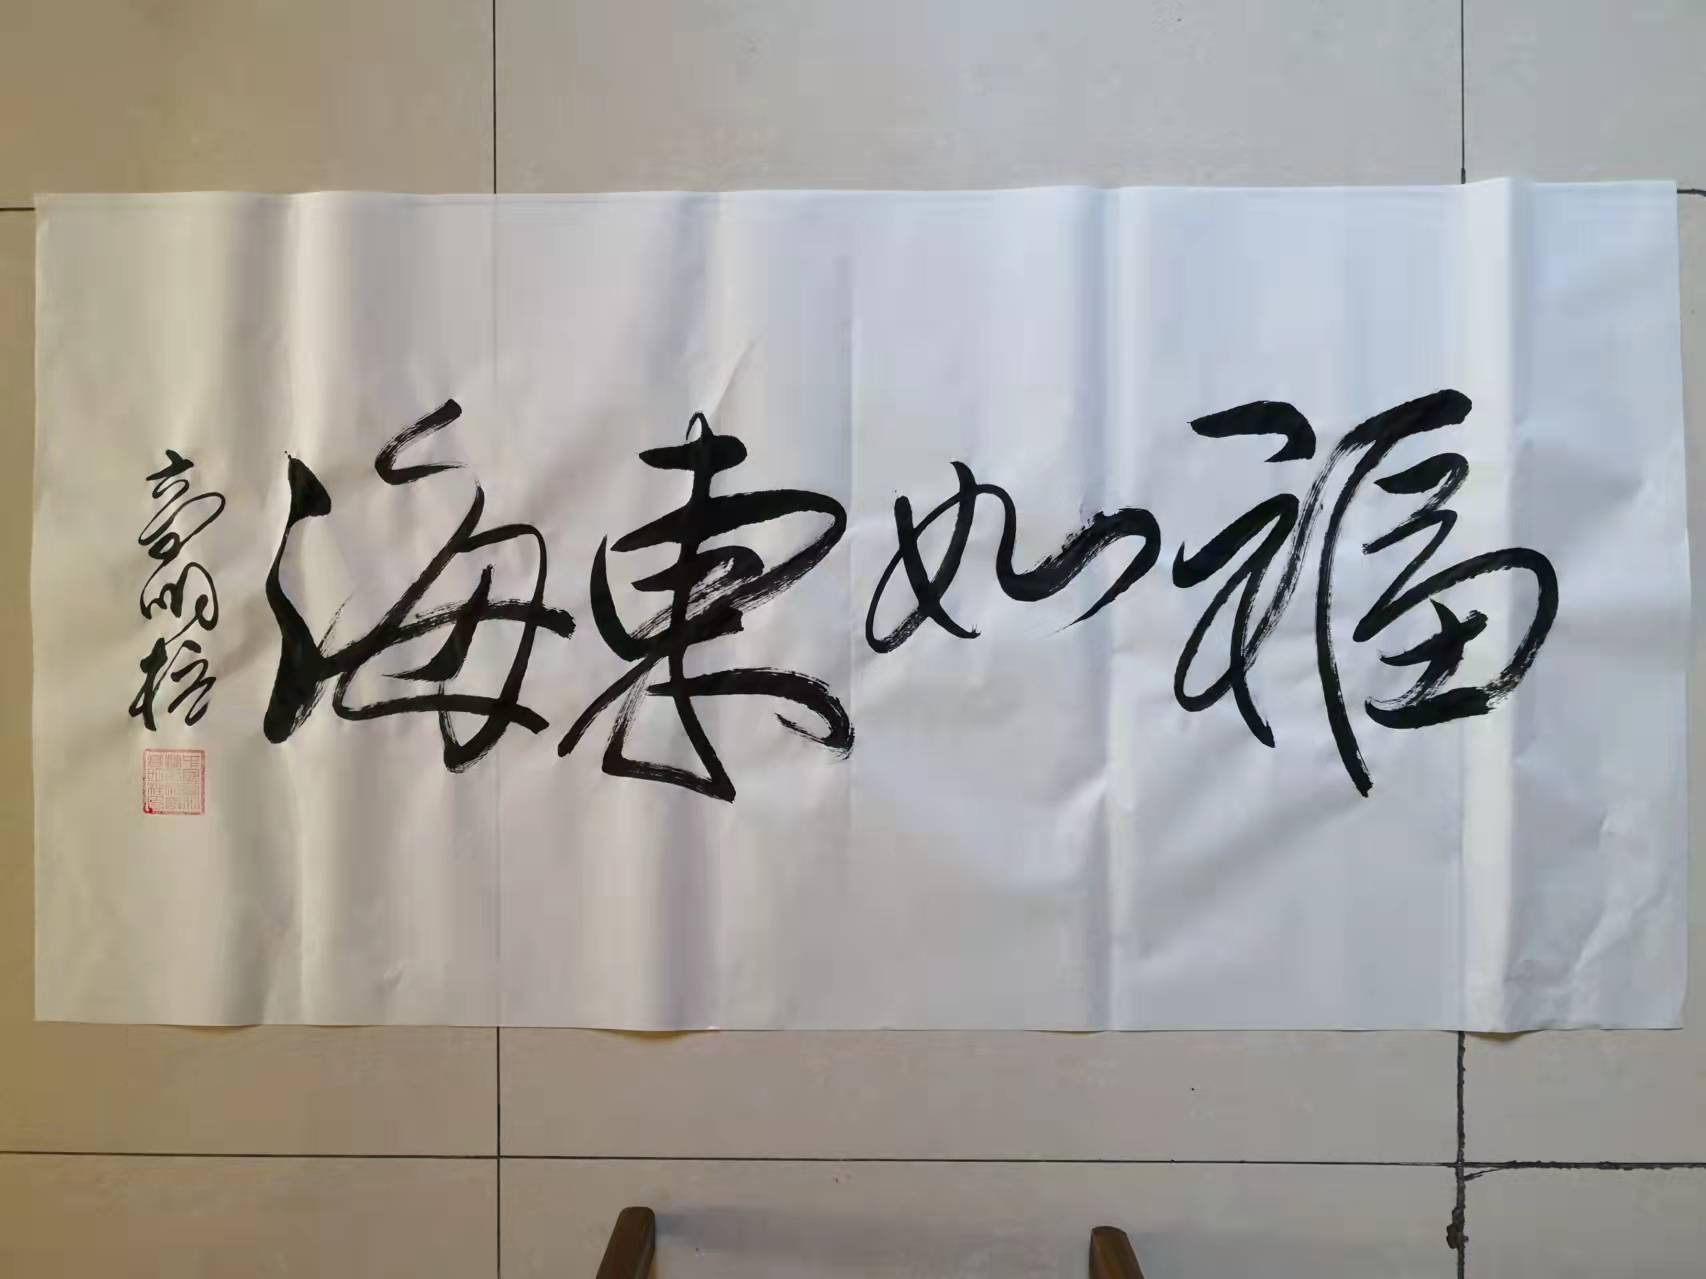 福如東海
高明柱